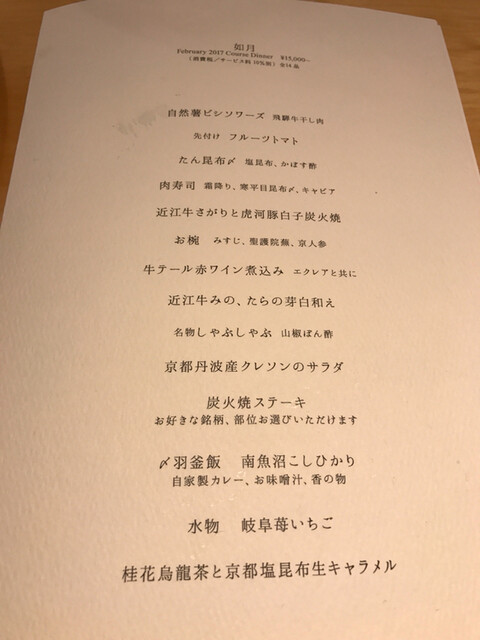 如月
February 2017 Course Dinner ¥15,000~
(消費税/サービス料 10%別) 全14品
自然薯ビシソワーズ 飛騨牛干し肉
先付け フルーツトマト
たん昆布〆 塩昆布、かぼす酢
肉寿司 霜降り、寒平目昆布〆、キャビア
近江牛さがりと虎河豚白子炭火焼
お椀 みすじ、聖護院蕪、京人参
牛テール赤ワイン煮込み エクレアと共に
近江牛みの、たらの芽白和え
名物しゃぶしゃぶ 山椒ぽん酢
京都丹波産クレソンのサラダ
炭火焼ステーキ
お好きな銘柄、部位お選びいただけます
〆羽釜飯 南魚沼こしひかり
自家製カレー、お味噌汁、香の物
水物 岐阜苺いちご
桂花烏龍茶と京都塩昆布生キャラメル